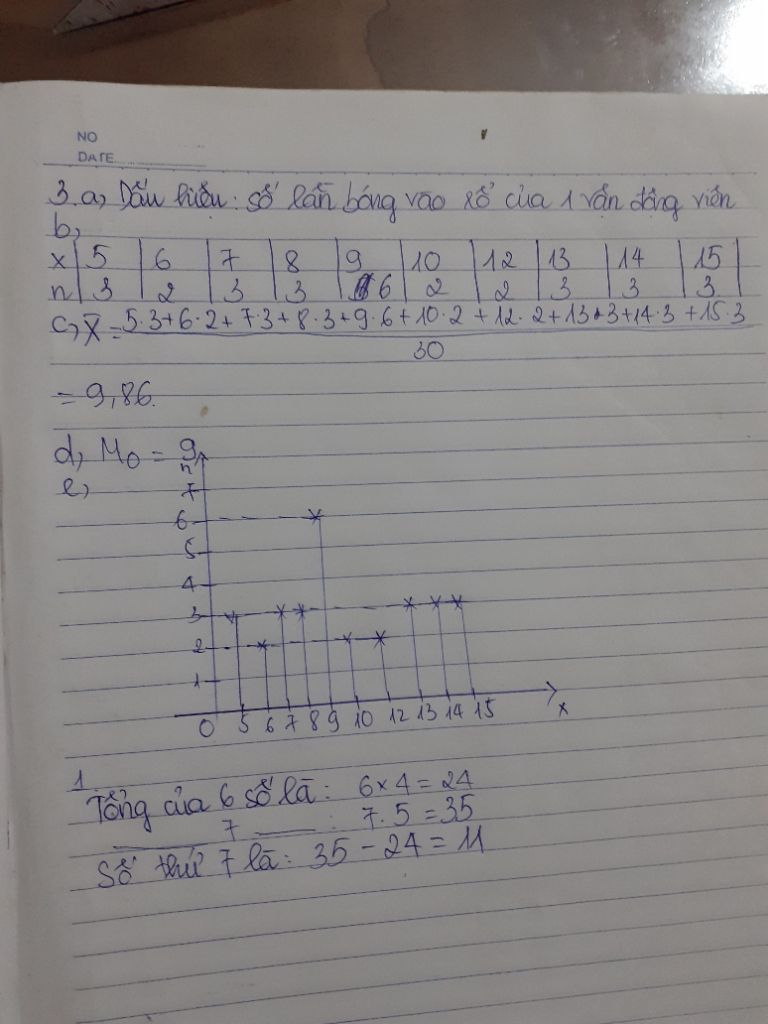 NO
DATE
3. a, Dấu hiệu: số lần bóng vào rổ của 1 vận động viên
b,
x | 5 | 6 | 7 | 8 | 9 | 10 | 12 | 13 | 14 | 15 |
n | 3 | 2 | 3 | 3 | 6 | 2 | 2 | 3 | 3 | 3
c, X̄ = 5.3+6.2+7.3+8.3+9.6+10.2+12.2+13.3+14.3+15.3
30
= 9,86.
d, M₀ = 9
e,
n
7
6
5
4
3
2
1
0 5 6 7 8 9 10 12 13 14 15 x
1.
Tổng của 6 số là: 6x4=24
7 : 7.5=35
Số thứ 7 là: 35-24=11